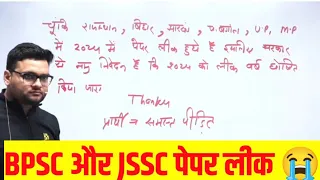 चूंकि राजस्थान, बिहार, झारखंड, प. बंगाल, U.P, M.P
में 2024 में पेपर लीक हुये हैं इसलिए सरकार
से नम्र निवेदन है कि 2024 को लीक वर्ष घोषित
किया जाए
Thanku
प्रार्थी → समस्त पीड़ित
BPSC और JSSC पेपर लीक 😭